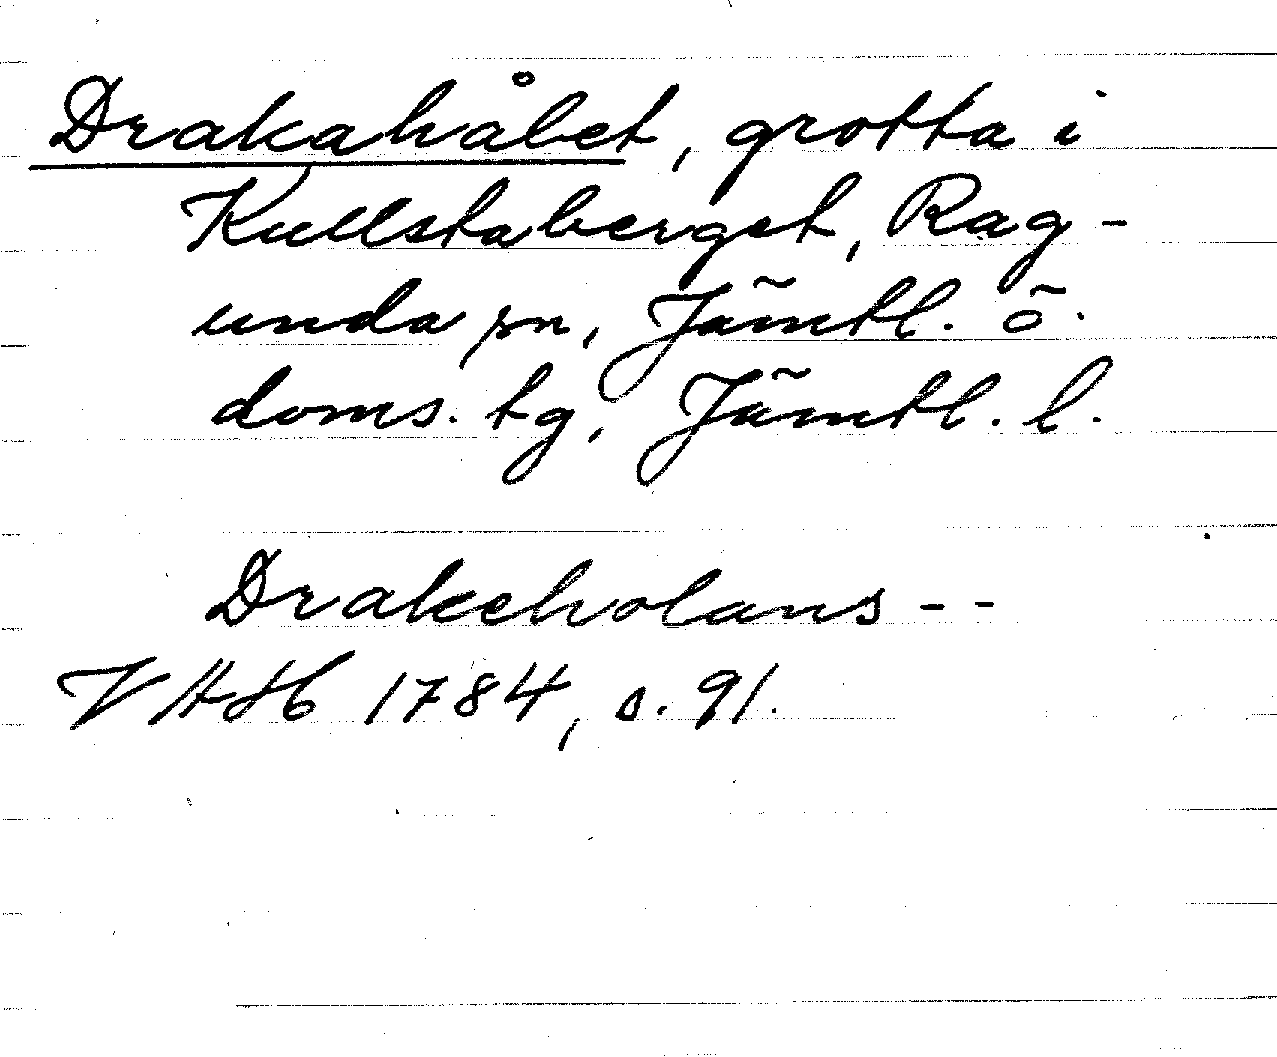 Drakahålet, grotta i
Kullstaberget, Rag-
unda sn, Jämtl. ö.
doms. tg, Jämtl. l.
Drakeholans - -
VAH 1784, s. 91.